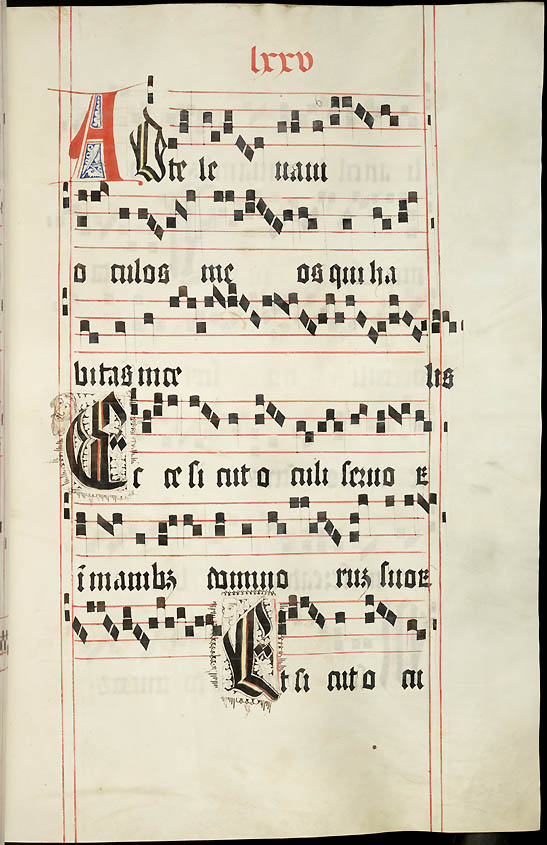 lxxv
AD te le vaui
o culos me os qui ha
bitas in ce lis
Ec ce si cut o culi seruo ꝝ
ī manibꝫ domino rum suoꝝ
Et si cut o cu